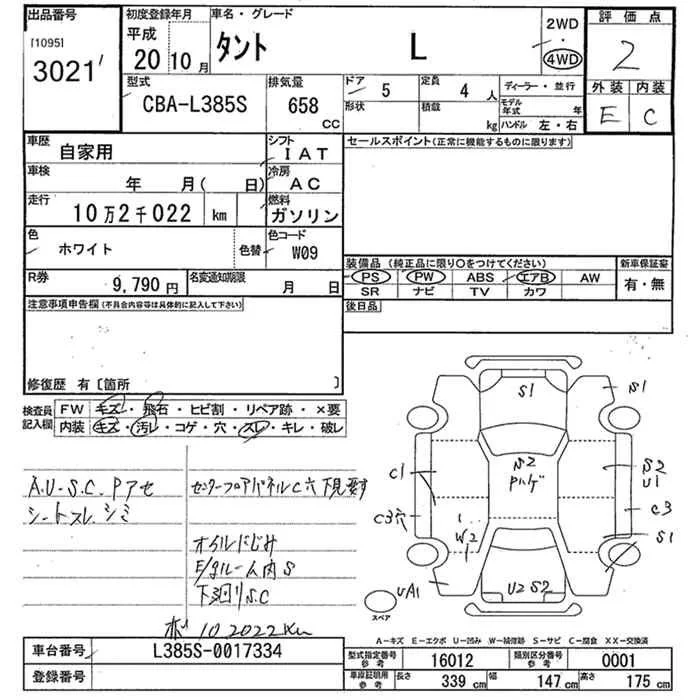 出品番号
[1095]
3021
初度登録年月
平成
20 10月
車名・グレード
タント L
2WD
・
4WD
評価点
2
外装 内装
E C
型式
CBA-L385S
排気量
658
CC
ドア
5
定員
4 人
形状
積載
kg
ディーラー・並行
モデル年式 年
ハンドル 左・右
車歴
自家用
シフト
IAT
車検
年 月( 日)
冷房
AC
走行
10万2千022 km
燃料
ガソリン
色
ホワイト
色替
色コード
W09
R券
9,790円
名変通知期限
月 日
セールスポイント(正常に機能するものに限ります)
装備品(純正品に限り○をつけてください)
PS PW ABS エアB AW
SR ナビ TV カワ
新車保証書
有・無
後日品
注意事項申告欄(不具合内容等は具体的に記入して下さい)
修復歴 有〔箇所 〕
検査員記入欄
FW キズ・飛石・ヒビ割・リペア跡・×要
内装 キズ・汚レ・コゲ・穴・スレ・キレ・破レ
A.U-S.C.Pアセ
シートスレ.シミ
センターフロアパネルC穴 下見要す
オイルにじみ
E/gルーム内S
下廻りS.C
ボ 10.2022Km
S1
S1
S2
C1
S2
U1
C3穴
C3
W2
S1
UA1
U2 S2
スペア
A-キズ E-エクボ U-凹み W-補修跡 S-サビ C-腐食 XX-交換済
車台番号
L385S-0017334
登録番号
型式指定番号
参考
16012
類別区分番号
参考
0001
車庫証明用
参考
長さ 339 cm
幅 147 cm
高さ 175 cm